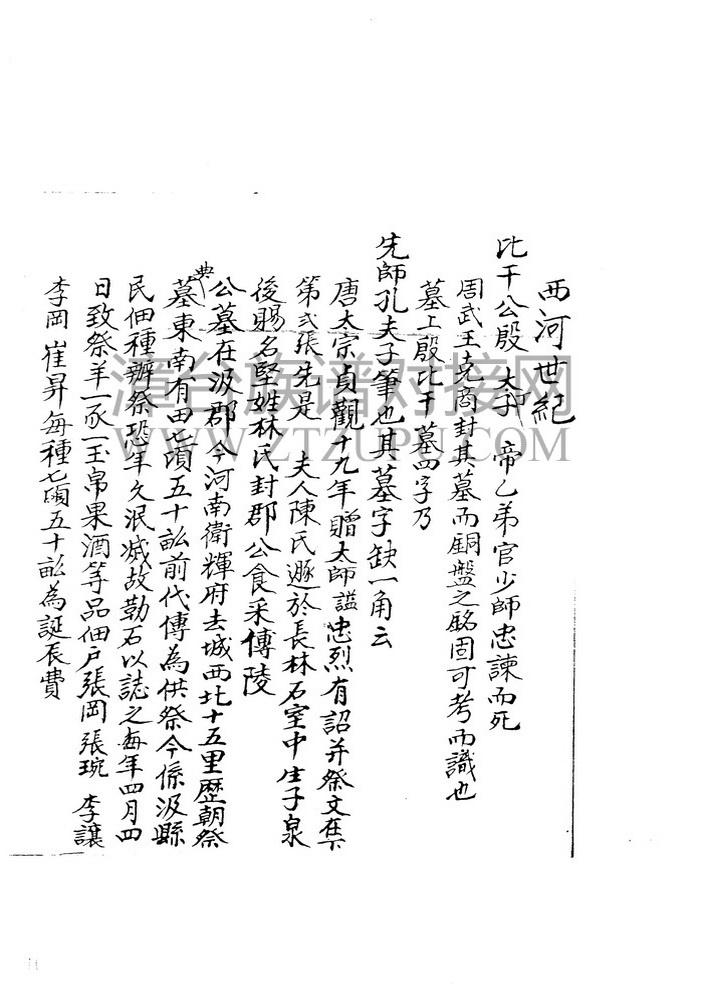 西河世紀
比干公殷 太丁 帝乙弟官少師忠諫而死
周武王克商封其墓而銅盤之銘固可考而識也
墓上殷比干墓四字乃
先師孔夫子筆也其墓字缺一角云
唐太宗貞觀十九年贈太師謚忠烈有詔并祭文在下
第弍張先是 夫人陳氏遯於長林石室中生子泉
後賜名堅姓林氏封郡公食采傅陵
公墓在汲郡今河南衛輝府去城西北十五里歷朝祭
典
墓東南有田七頃五十畝前代傳為供祭今係汲縣
民佃種辦祭恐年久泯滅故勒石以誌之每年四月四
日致祭羊一豕一玉帛果酒等品佃户張岡張琬 李讓
李岡崔昇每種七頃五十畝為誕辰費
漳台族谱对接网
WWW.ZTZUPU.COM